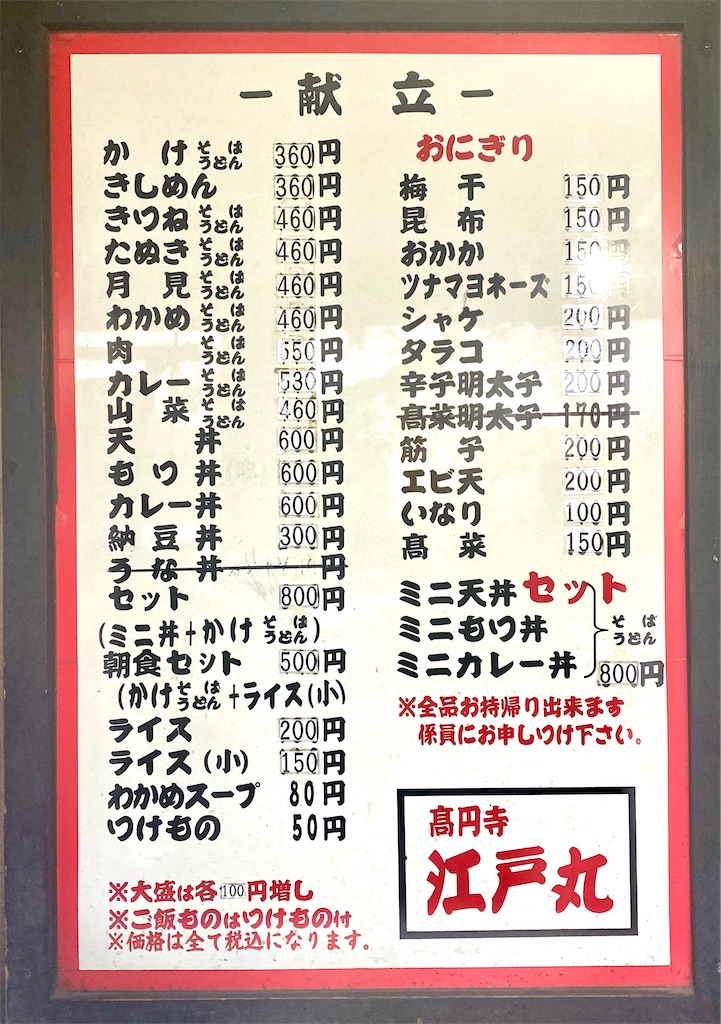 ー献立ー
かけ そば うどん 360円
きしめん 360円
きつね そば うどん 460円
たぬき そば うどん 460円
月見 そば うどん 460円
わかめ そば うどん 460円
肉 そば うどん 550円
カレー そば うどん 530円
山菜 そば うどん 460円
天丼 600円
もつ丼 600円
カレー丼 600円
納豆丼 300円
うな丼 円
セット 800円
(ミニ丼+かけ そば うどん)
朝食セット 500円
(かけ そば うどん +ライス(小)
ライス 200円
ライス(小) 150円
わかめスープ 80円
つけもの 50円
※大盛は各100円増し
※ご飯ものはつけもの付
※価格は全て税込になります。
おにぎり
梅干 150円
昆布 150円
おかか 150円
ツナマヨネーズ 150円
シャケ 200円
タラコ 200円
辛子明太子 200円
髙菜明太子 170円
筋子 200円
エビ天 200円
いなり 100円
髙菜 150円
ミニ天丼セット
ミニもつ丼 そば うどん
ミニカレー丼 800円
※全品お持帰り出来ます
係員にお申しつけ下さい。
髙円寺
江戸丸